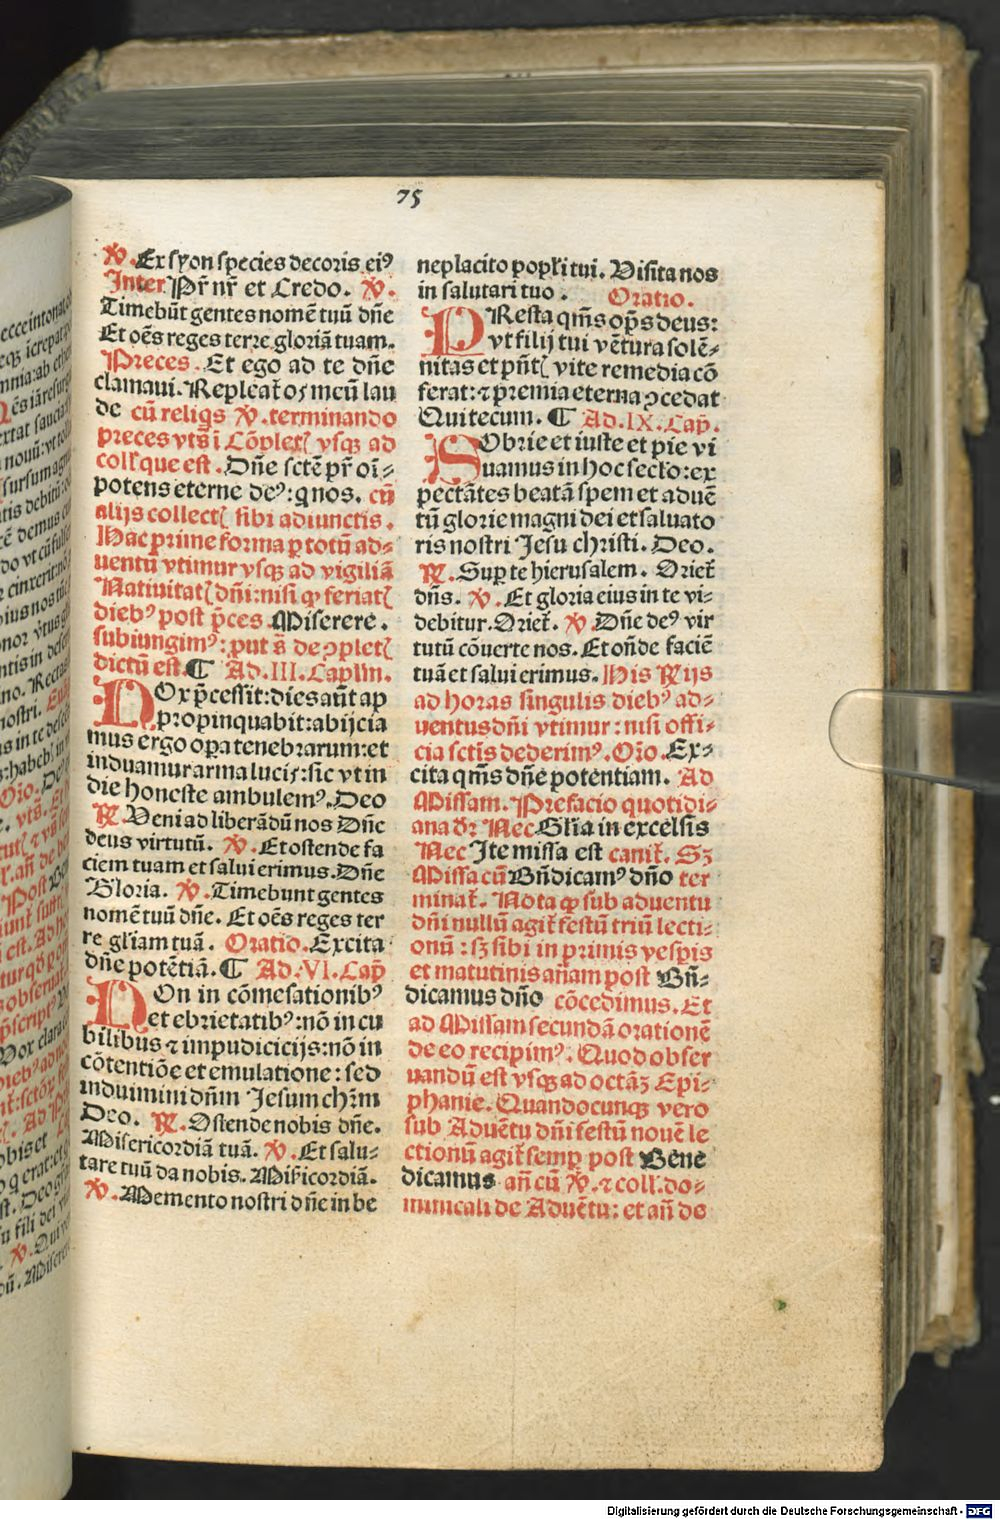 75
℣. Ex syon species decoris eiꝰ
Inter Pr̄ nr̄ et Credo. ℣.
Timebūt gentes nomē tuū dn̄e
Et oēs reges terre gloriā tuam.
Preces. Et ego ad te dn̄e
clamaui. Repleat̄ os meū lau
de cū reliqs ℣. terminando
preces vts̄ ī Cōplet vsqꝫ ad
coll' que est. Dn̄e sctē pr̄ oī⸗
potens eterne deꝰ: q nos. cū
alijs collect sibi adiunctis.
Hac prime forma p totū ad⸗
uentū vtimur vsqꝫ ad vigiliā
Natiuitat dn̄i: nisi ꝙ feriat
diebꝰ post p̄ces Miserere.
subiungimꝰ: put s̄ de ꝯplet
dictū est. ¶ Ad. III. Caplm.
NOx p̄cessit: dies aūt ap
propinquabit: abijcia
mus ergo opa tenebrarum: et
induamur arma lucis: sic vt in
die honeste ambulemꝰ. Deo
℟. Veni ad liberādū nos Dn̄e
deus virtutū. ℣. Et ostende fa
ciem tuam et salui erimus. Dn̄e
Gloria. ℣. Timebunt gentes
nomē tuū dn̄e. Et oēs reges ter
re gl̄iam tuā. Oratio. Excita
dn̄e potētiā. ¶ Ad. VI. Cap̄
NOn in cōmesationibꝰ
et ebrietatibꝰ: nō in cu
bilibus ⁊ impudicicijs: nō in
cōtentiōe et emulatione: sed
induimini dn̄m Jesum chr̄m
Deo. ℟. Ostende nobis dn̄e.
Misericordiā tuā. ℣. Et salu⸗
tare tuū da nobis. Mis̄icordiā.
℣. Memento nostri dn̄e in be
neplacito popl̄i tui. Visita nos
in salutari tuo. Oratio.
PResta qm̄s op̄s deus:
vt filij tui vētura solē⸗
nitas et pn̄t vite remedia cō
ferat: ⁊ premia eterna ꝯcedat
Qui tecum. ¶ Ad. IX. Cap̄.
SObrie et iuste et pie vi
uamus in hoc seclo: ex
pectātes beatā spem et aduē
tū glorie magni dei et saluato
ris nostri Jesu christi. Deo.
℟. Sup te hierusalem. Oriet̄
dn̄s. ℣. Et gloria eius in te vi⸗
debitur. Oriet̄. ℣. Dn̄e deꝰ vir
tutū cōuerte nos. Et on̄de faciē
tuā et salui erimus. His Rijs
ad horas singulis diebꝰ ad⸗
uentus dn̄i vtimur: nisi offi⸗
cia sctīs dederimꝰ. Or̄o. Ex⸗
cita qm̄s dn̄e potentiam. Ad
Missam. Prefacio quotidi⸗
ana dr̄. Nec Gl̄ia in excelsis
Nec Ite missa est canit̄. Sꝫ
Missa cū Bn̄dicamꝰ dn̄o ter
minat̄. Nota ꝙ sub aduentu
dn̄i nullū agit̄ festū triū lecti⸗
onū: sꝫ sibi in primis vespis
et matutinis an̄am post Bn̄⸗
dicamus dn̄o cōcedimus. Et
ad Missam secundā orationē
de eo recipimꝰ. Quod obser
uandū est vsqꝫ ad octāꝫ Epi⸗
phanie. Quandocunqꝫ vero
sub Aduētu dn̄i festū nouē le
ctionū agit̄ semp post Bene
dicamus an̄ cū ℣. ⁊ coll'. do⸗
minicali de Aduētu: et an̄ de
Digitalisierung gefördert durch die Deutsche Forschungsgemeinschaft - DFG